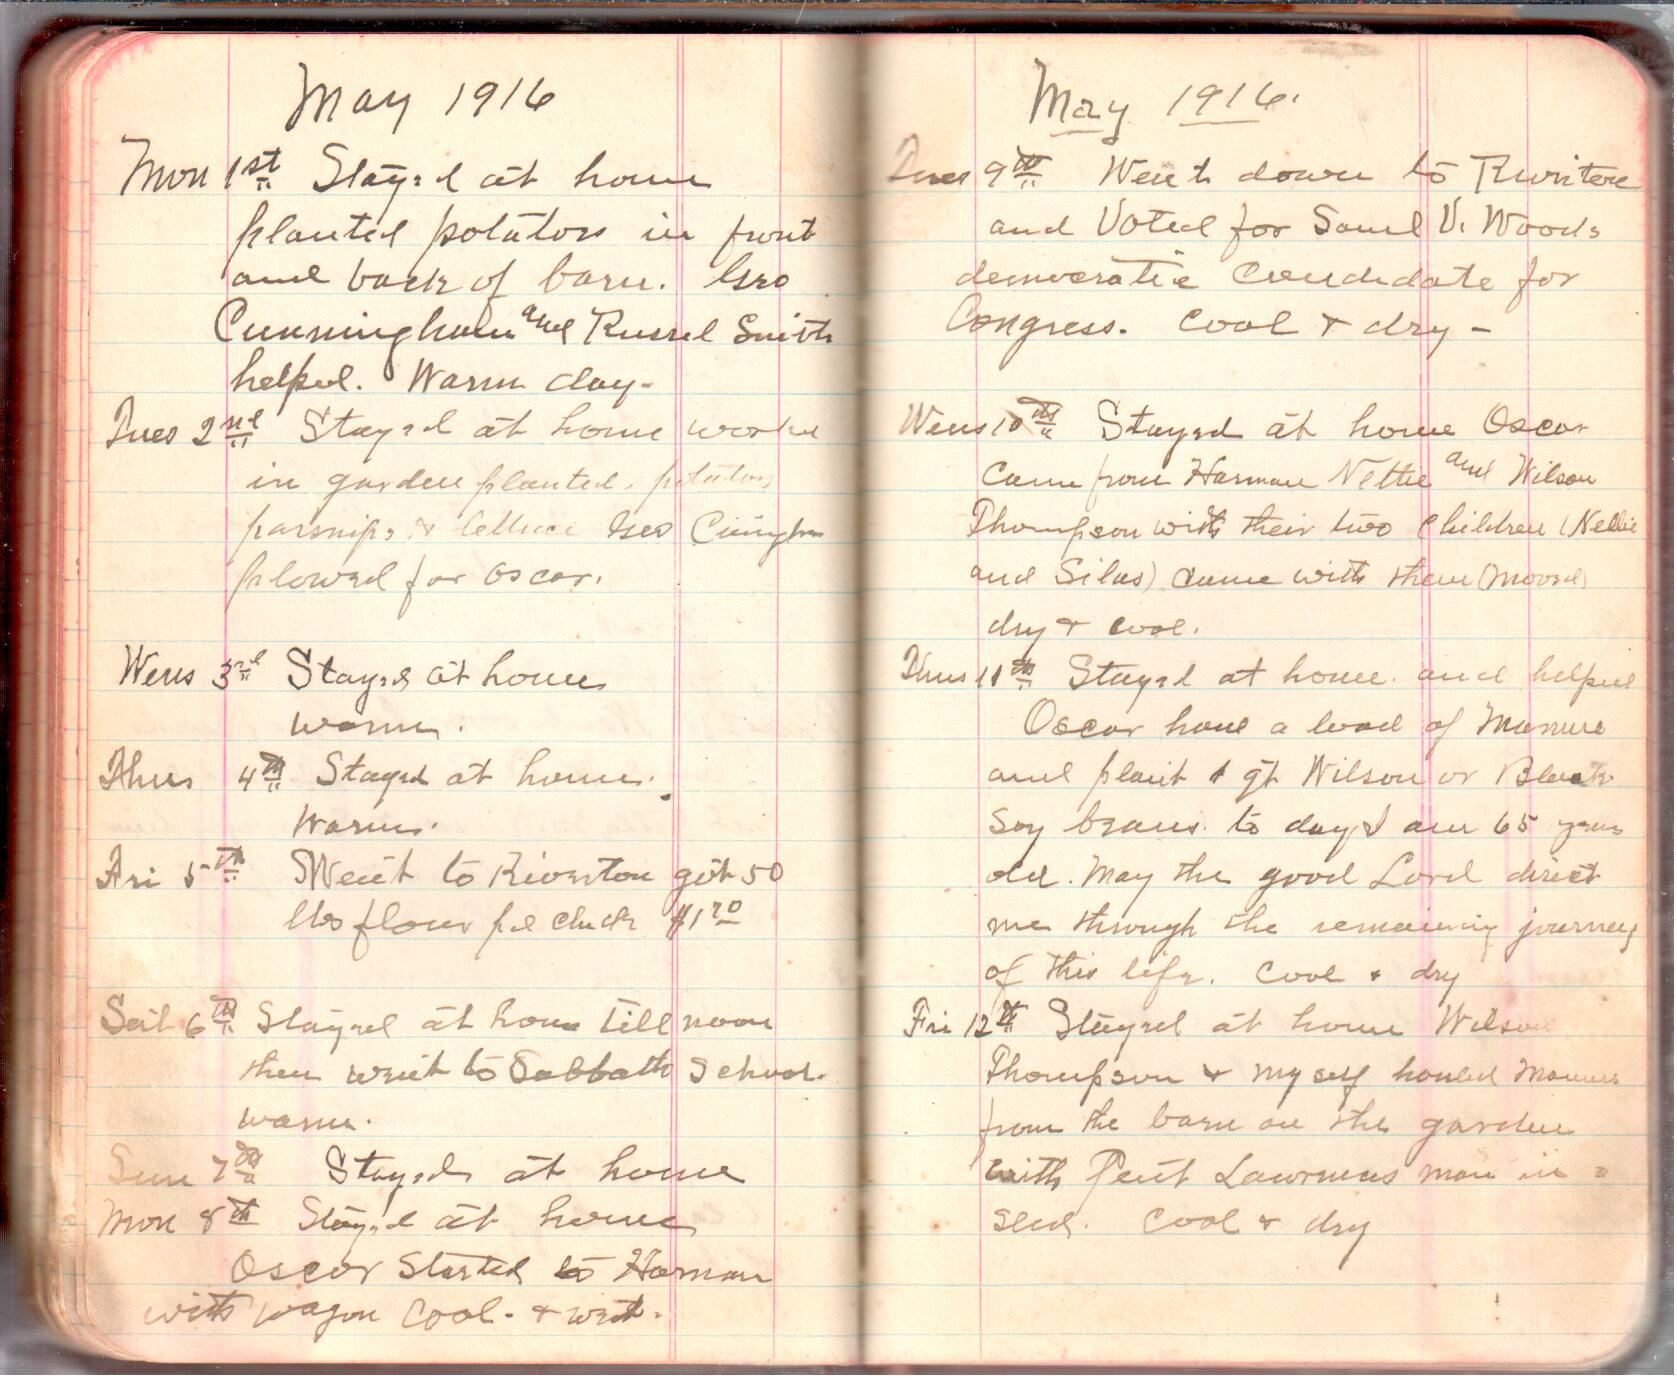 May 1916
Mon 1st Stayed at home
planted potators in front
and back of barn. Geo
Cunningham and Russel Smith
helped. Warm day-
Tues 2nd Stayed at home worked
in garden planted. potators
parsnips & lettuce Geo
plowed for Oscar.
Wens 3rd Stayed at home
warm.
Thus 4th Stayed at home.
Warm.
Fri 5th Went to Riverton got 50
lbs flour pd check $1 70
Sat 6th Stayed at home till noon
then went to Sabbath School.
warm.
Sun 7th Stayed at home
Mon 8th Stayed at home
Oscar Started to Harman
with wagon Cool. & wet.
May 1916.
Tues 9th Went down to
and Voted for Saml V. Woods
democratic Candidate for
Congress. Cool & dry -
Wens 10th Stayed at home Oscar
Came from Harman Nettie and Wilson
Thompson with their two Children (Nellie
and Silas) came with them (Moved)
dry & cool.
Thus 11th Stayed at home. and helped
Oscar haul a load of Manure
and plant 1 qt Wilson or Black
Soy beans. to day I am 65 years
old. May the good Lord direct
me through the remaining journey
of this life. Cool & dry
Fri 12th Stayed at home Wilson
Thompson & myself hauled Manure
from the barn on the garden
with man in a
sled. Cool & dry